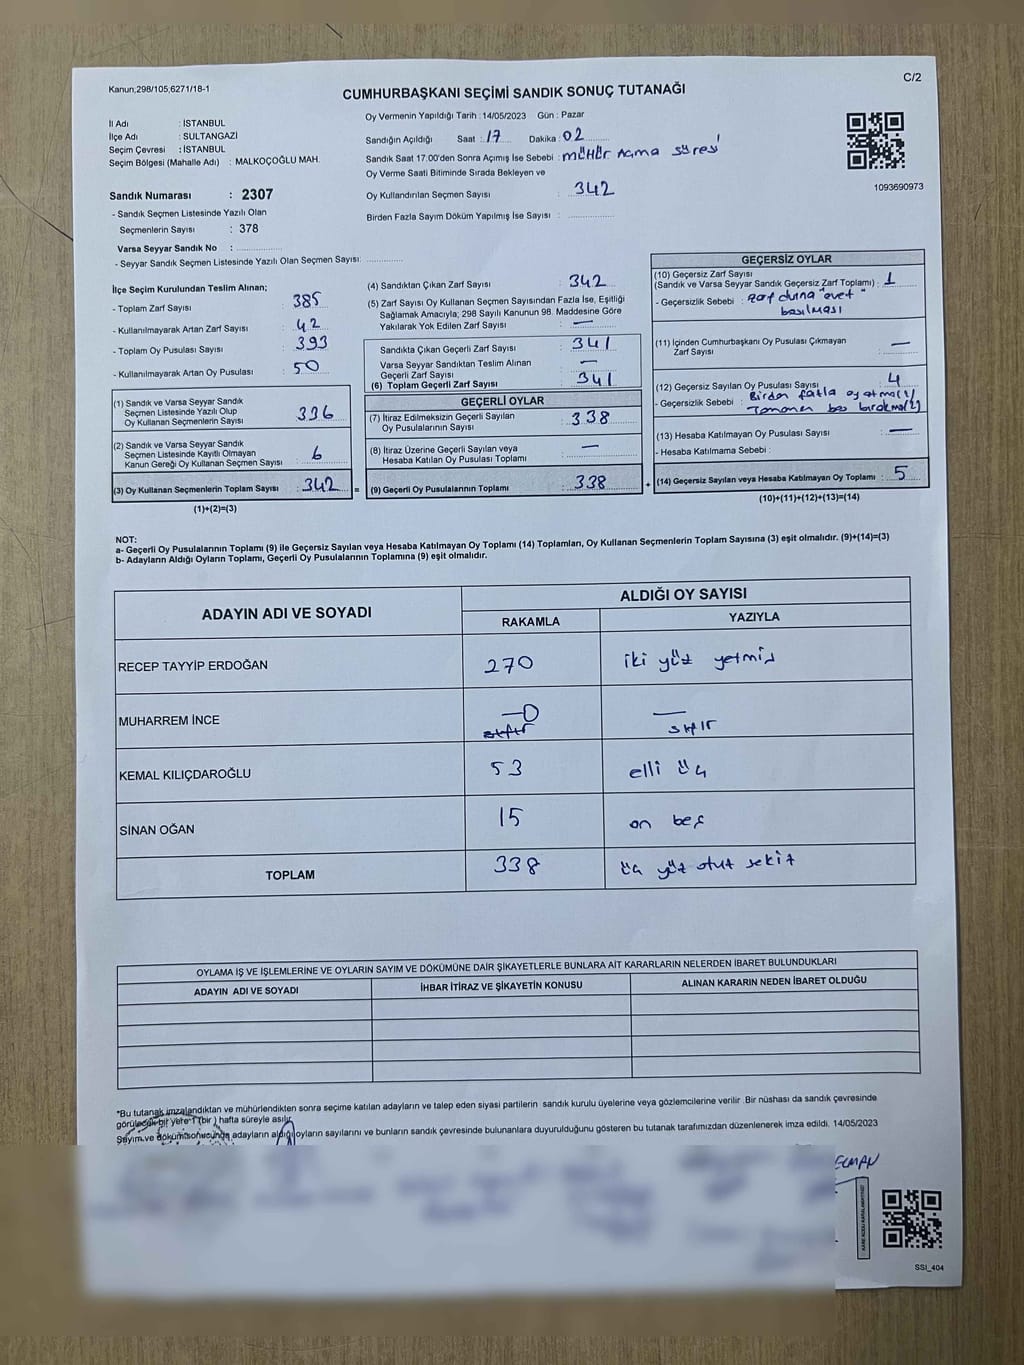 Kanun,298/105,6271/18-1
C/2
CUMHURBAŞKANI SEÇİMİ SANDIK SONUÇ TUTANAĞI
İl Adı : İSTANBUL
İlçe Adı : SULTANGAZİ
Seçim Çevresi : İSTANBUL
Seçim Bölgesi (Mahalle Adı) : MALKOÇOĞLU MAH.
Oy Vermenin Yapıldığı Tarih : 14/05/2023 Gün : Pazar
Sandığın Açıldığı Saat : 17 Dakika : 02
Sandık Saat 17.00'den Sonra Açımış İse Sebebi : mühür Açma süresi
Oy Verme Saati Bitiminde Sırada Bekleyen ve
Oy Kullandırılan Seçmen Sayısı : 342
Birden Fazla Sayım Döküm Yapılmış İse Sayısı :
1093690973
Sandık Numarası : 2307
- Sandık Seçmen Listesinde Yazılı Olan
Seçmenlerin Sayısı : 378
Varsa Seyyar Sandık No :
- Seyyar Sandık Seçmen Listesinde Yazılı Olan Seçmen Sayısı:
İlçe Seçim Kurulundan Teslim Alınan;
- Toplam Zarf Sayısı : 385
- Kullanılmayarak Artan Zarf Sayısı : 42
- Toplam Oy Pusulası Sayısı : 393
- Kullanılmayarak Artan Oy Pusulası : 50
(1) Sandık ve Varsa Seyyar Sandık
Seçmen Listesinde Yazılı Olup
Oy Kullanan Seçmenlerin Sayısı : 336
(2) Sandık ve Varsa Seyyar Sandık
Seçmen Listesinde Kayıtlı Olmayan
Kanun Gereği Oy Kullanan Seçmen Sayısı : 6
(3) Oy Kullanan Seçmenlerin Toplam Sayısı : 342 =
(1)+(2)=(3)
(4) Sandıktan Çıkan Zarf Sayısı : 342
(5) Zarf Sayısı Oy Kullanan Seçmen Sayısından Fazla İse, Eşitliği
Sağlamak Amacıyla; 298 Sayılı Kanunun 98. Maddesine Göre
Yakılarak Yok Edilen Zarf Sayısı : —
Sandıkta Çıkan Geçerli Zarf Sayısı : 341
Varsa Seyyar Sandıktan Teslim Alınan
Geçerli Zarf Sayısı : —
(6) Toplam Geçerli Zarf Sayısı : 341
GEÇERLİ OYLAR
(7) İtiraz Edilmeksizin Geçerli Sayılan
Oy Pusulalarının Sayısı : 338
(8) İtiraz Üzerine Geçerli Sayılan veya
Hesaba Katılan Oy Pusulası Toplamı : —
(9) Geçerli Oy Pusulalarının Toplamı : 338 +
GEÇERSİZ OYLAR
(10) Geçersiz Zarf Sayısı
(Sandık ve Varsa Seyyar Sandık Geçersiz Zarf Toplamı) : 1
- Geçersizlik Sebebi : zarf dışına "evet"
basılması
(11) İçinden Cumhurbaşkanı Oy Pusulası Çıkmayan
Zarf Sayısı : —
(12) Geçersiz Sayılan Oy Pusulası Sayısı : 4
- Geçersizlik Sebebi : Birden fazla oy atma(2)
Tamamen boş bırakma(2)
(13) Hesaba Katılmayan Oy Pusulası Sayısı : —
- Hesaba Katılmama Sebebi :
(14) Geçersiz Sayılan veya Hesaba Katılmayan Oy Toplamı : 5
(10)+(11)+(12)+(13)=(14)
NOT:
a- Geçerli Oy Pusulalarının Toplamı (9) ile Geçersiz Sayılan veya Hesaba Katılmayan Oy Toplamı (14) Toplamları, Oy Kullanan Seçmenlerin Toplam Sayısına (3) eşit olmalıdır. (9)+(14)=(3)
b- Adayların Aldığı Oyların Toplamı, Geçerli Oy Pusulalarının Toplamına (9) eşit olmalıdır.
ADAYIN ADI VE SOYADI
ALDIĞI OY SAYISI
RAKAMLA YAZIYLA
RECEP TAYYİP ERDOĞAN 270 iki yüz yetmiş
MUHARREM İNCE —0 —
sıfır sıfır
KEMAL KILIÇDAROĞLU 53 elli üç
SİNAN OĞAN 15 on beş
TOPLAM 338 üç yüz otuz sekiz
OYLAMA İŞ VE İŞLEMLERİNE VE OYLARIN SAYIM VE DÖKÜMÜNE DAİR ŞİKAYETLERLE BUNLARA AİT KARARLARIN NELERDEN İBARET BULUNDUKLARI
ADAYIN ADI VE SOYADI İHBAR İTİRAZ VE ŞİKAYETİN KONUSU ALINAN KARARIN NEDEN İBARET OLDUĞU
*Bu tutanak imzalandıktan ve mühürlendikten sonra seçime katılan adayların ve talep eden siyasi partilerin sandık kurulu üyelerine veya gözlemcilerine verilir. Bir nüshası da sandık çevresinde
görülecek bir yere 1 (bir ) hafta süreyle asılır.
Sayım ve dökümü sonucunda adayların aldığı oyların sayılarını ve bunların sandık çevresinde bulunanlara duyurulduğunu gösteren bu tutanak tarafımızdan düzenlenerek imza edildi. 14/05/2023
SSI_404